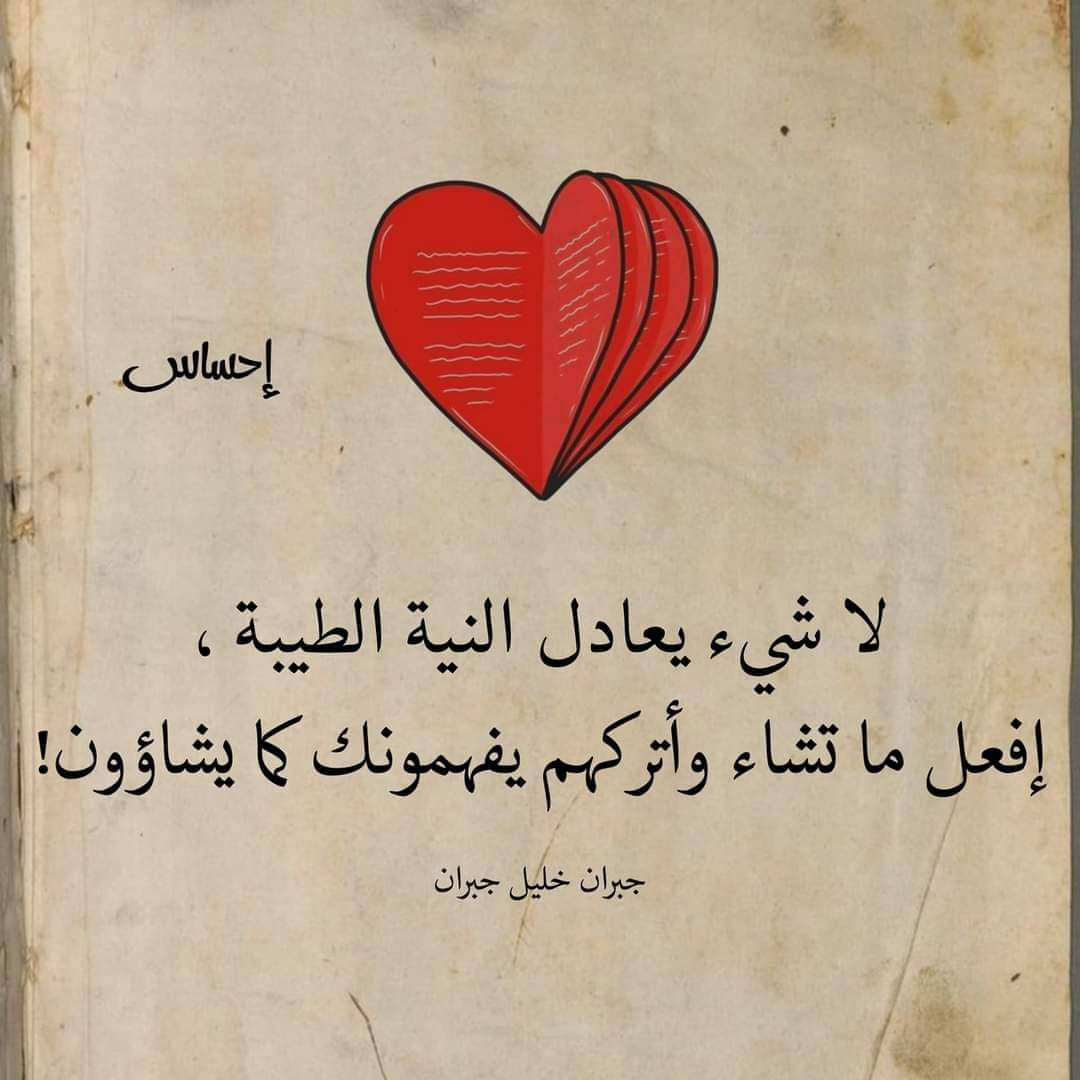 إحساس
لا شيء يعادل النية الطيبة ،
إفعل ما تشاء وأتركهم يفهمونك كما يشاؤون!
جبران خليل جبران